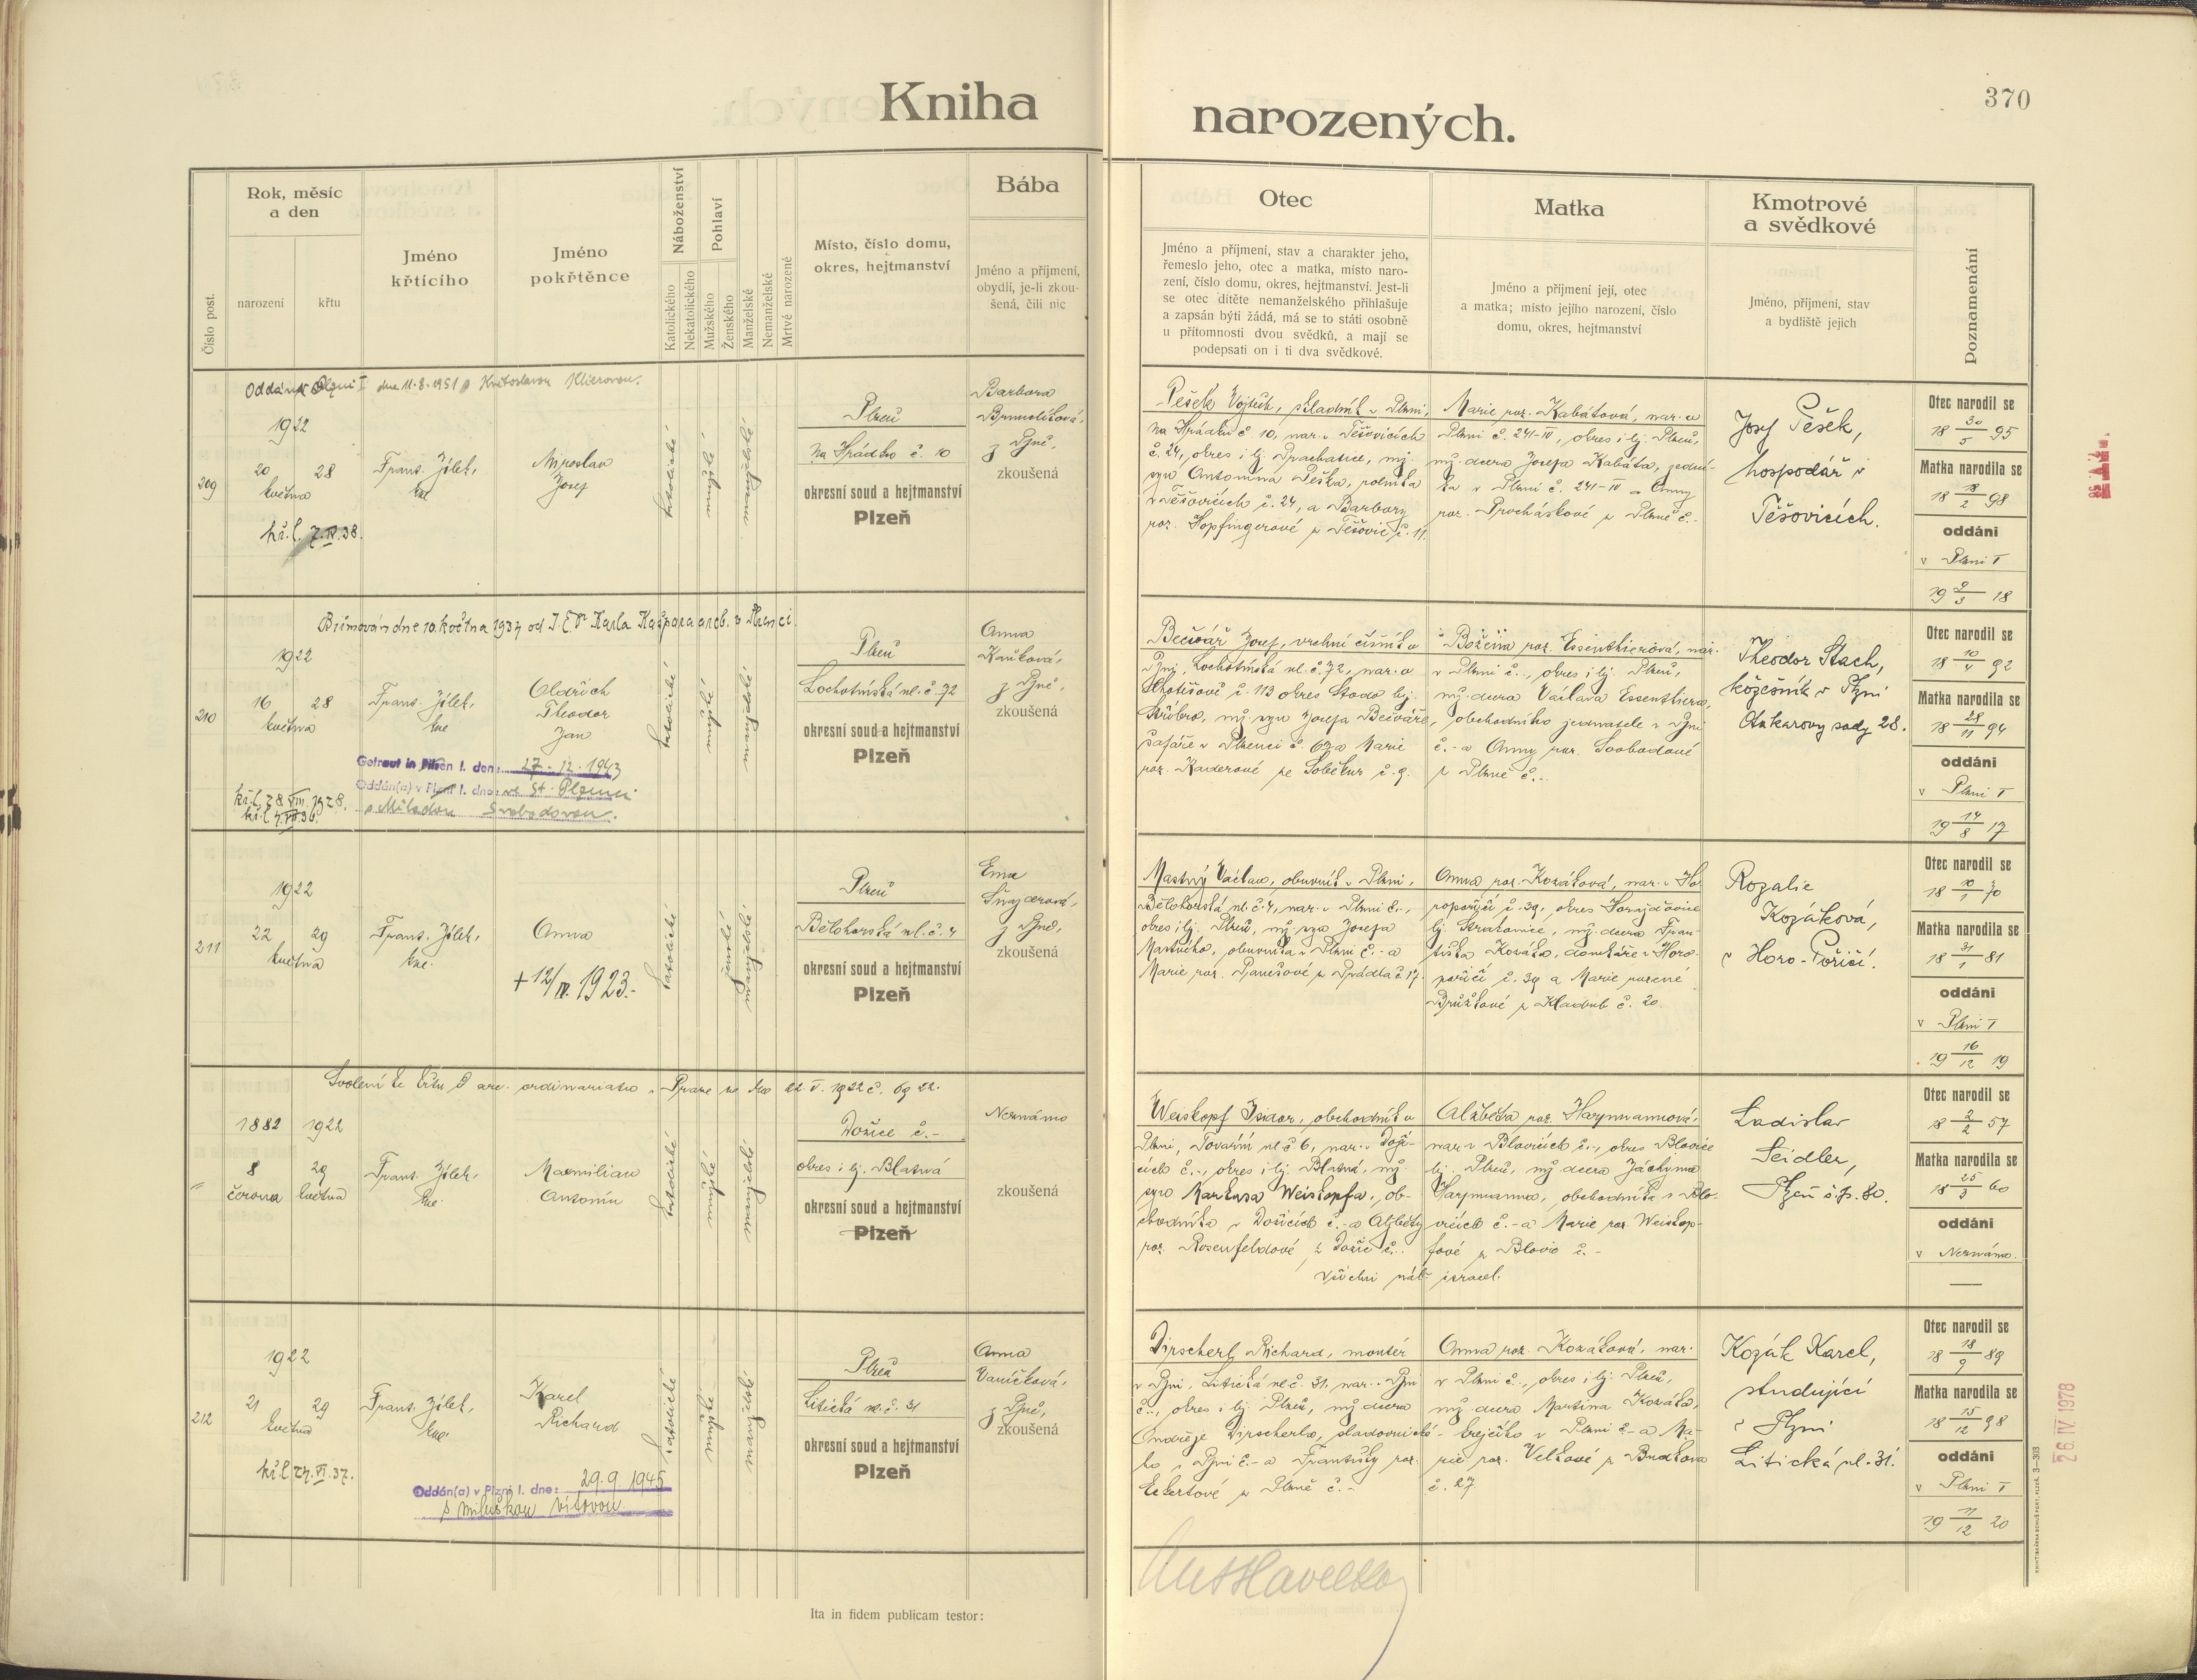 Kniha narozených.
370
Číslo post.
Rok, měsíc
a den
narození
křtu
Jméno
křtícího
Jméno
pokřtěnce
Náboženství
Katolického
Nekatolického
Pohlaví
Mužského
Ženského
Manželské
Nemanželské
Mrtvě narozené
Místo, číslo domu,
okres, hejtmanství
Bába
Jméno a příjmení,
obydlí, je-li zkou-
šená, čili nic
Otec
Jméno a příjmení, stav a charakter jeho,
řemeslo jeho, otec a matka, místo naro-
zení, číslo domu, okres, hejtmanství. Jest-li
se otec dítěte nemanželského přihlašuje
a zapsán býti žádá, má se to státi osobně
u přítomnosti dvou svědků, a mají se
podepsati on i ti dva svědkové.
Matka
Jméno a příjmení její, otec
a matka; místo jejího narození, číslo
domu, okres, hejtmanství
Kmotrové
a svědkové
Jméno, příjmení, stav
a bydliště jejich
Doznamenání
Oddán v Plzni I dne 11.8.1951 s Květoslavou Klierovou.
209
1922
20 28
května
kř.l. 7.IV.38.
Frant. Jílek,
kne
Miroslav
Josef
katolické
mužské
manželské
Plzeň
Na Hrádku č. 10
okresní soud a hejtmanství
Plzeň
Barbora
z Plzně,
zkoušená
Pešek Vojtěch, skladník v Plzni,
Na Hrádku č 10, nar. v Těšovicích
č. 24, okres i hj. Prachatice, mž.
syn Antonína Peška, rolníka
v Těšovicích č. 24, a Barbory
roz. Hopfingerové z Těšovic č. 11.
Marie roz. Kabátová, nar. v
Plzni č. 241-IV, okres i hj. Plzeň,
mž. dcera Josefa Kabáta,
v Plzni č. 241-IV a Anny
roz. Procháskové z Plzně č.-
Josef Pešek,
hospodář v
Těšovicích.
Otec narodil se
18 30/5 95
Matka narodila se
18 18/2 98
oddáni
v Plzni I
19 9/3 18
Biřmován dne 10. května 1937 od J.E.Dr Karla Kašpara arcib. v Plzenci.
210
1922
16 28
května
kř.l. 28.VIII.1928.
kř.l. 7.VII.36.
Frant. Jílek,
kne
Oldřich
Theodor
Jan
Getraut in Pilsen I. den: 27.12.1943
Oddán(a) v Plzni I. dne: ve St. Plzenci
s Miladou Svobodovou.
katolické
mužské
manželské
Plzeň
Lochotínská ul. č. 72
okresní soud a hejtmanství
Plzeň
Anna
z Plzně,
zkoušená
Bečvář Josef, vrchní číšník v
Plzni, Lochotínská ul. č. 72, nar. v
Chotěšově č. 113 okres Stodo hj.
Stříbro, mž. syn Josefa Bečváře,
šafáře v Plzenci č. 63 a Marie
roz. Kaderové ze Soběkur č. 9.
Božena roz. Essenthierová, nar.
v Plzni č.-, okres i hj. Plzeň,
mž. dcera Václava Essenthiera,
obchodního jednatele v Plzni
č.- a Anny roz. Svobodové
z Plzně č.-
Theodor Stach,
kožešník v Plzni
Otakarovy sady 28.
Otec narodil se
18 10/4 92
Matka narodila se
18 28/11 94
oddáni
v Plzni I
19 14/8 17
211
1922
22 29
května
Frant. Jílek,
kne.
Anna
+ 12/IV. 1923.-
katolické
ženské
manželské
Plzeň
Bělohorská ul. č. 4
okresní soud a hejtmanství
Plzeň
Ema
Šnajderová,
z Plzně,
zkoušená
Mastný Václav, obuvník v Plzni,
Bělohorská ul. č. 4, nar. v Plzni č.-,
okres i hj. Plzeň, mž. syn Josefa
Mastného, obuvníka v Plzni č.- a
Marie roz. Panešové z Prádla č 17.
Anna roz. Kozáková, nar. v Ho-
ropoříčí č. 39, okres Horažďovice
hj. Strakonice, mž. dcera Fran-
tiška Kozáka, domkáře v Horo-
poříčí č. 39 a Marie rozené
Brůžkové z Kladrub č. 20.
Rozalie
Kozáková,
v Horo-Poříčí.
Otec narodil se
18 10/1 70
Matka narodila se
18 31/1 81
oddáni
v Plzni I
19 16/12 19
Svolení ke křtu od arc. ordinariatu v Praze ze dne 22.V.1922 č. 6922.
1882 1922
8 29
června května
Frant. Jílek,
kne
Maxmilian
Antonín
katolické
mužské
manželské
Dožice č.-
okres i hj. Blatná
okresní soud a hejtmanství
Plzeň
Neznámo
zkoušená
Weiskopf Isidor, obchodník v
Plzni, Tovární ul. č 6, nar. v Doži-
cích č.-, okres i hj. Blatná, mž.
syn Markusa Weiskopfa, ob-
chodníka v Dožicích č.- a Alžběty
roz. Rosenfeldové z Dožic č.-
Alžběta roz. Haymannová,
nar. v Blovicích č.-, okres Blovice
hj. Plzeň, mž. dcera Jáchyma
Haymanna, obchodníka v Blo-
vicích č.- a Marie roz. Weiskop-
fové z Blovic č.-
všichni náb. israel.
Ladislav
Seidler,
Plzeň č.p. 80.
Otec narodil se
18 2/2 57
Matka narodila se
18 25/3 60
oddáni
v Neznámo.
212
1922
21 29
května
kř.l. 27.VI.37.
Frant. Jílek,
kne
Karel
Richard
Oddán(a) v Plzni I. dne: 29.9.1945
s Miluškou Vítovou
katolické
mužské
manželské
Plzeň
Litická ul. č. 31
okresní soud a hejtmanství
Plzeň
Anna
Vaníčková,
z Plzně,
zkoušená
Dirscherl Richard, montér
v Plzni, Litická ul č. 31, nar. v Plzni
č.-, okres i hj. Plzeň, mž. dcera
Ondřeje Dirscherla, sladovnické-
ho v Plzni č.- a Františky roz.
Eckertové z Plzně č.-
Anna roz. Kozáková, nar.
v Plzni č.-, okres i hj. Plzeň,
mž. dcera Martina Kozáka,
krejčího v Plzni č.- a Ma-
rie roz. Velkové z Budkova
č. 27
Kozák Karel,
studující
v Plzni
Litická ul. 31.
Otec narodil se
18 18/9 89
Matka narodila se
18 15/12 98
oddáni
v Plzni I
19 11/12 20
26. IV. 1978
Ita in fidem publicam testor: